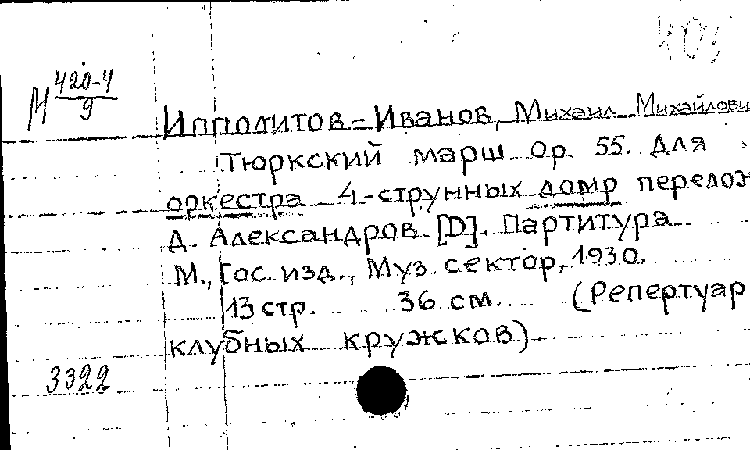 М 420-4
9
Ипполитов-Иванов, Михаил Михайлови
Тюркский марш Op. 55. Для
оркестра 4-струнных домр перелож
Д. Александров [D]. Партитура
М., Гос. изд., Муз. сектор, 1930.
13 стр. 36 см. (Репертуар
клубных кружков)
3322